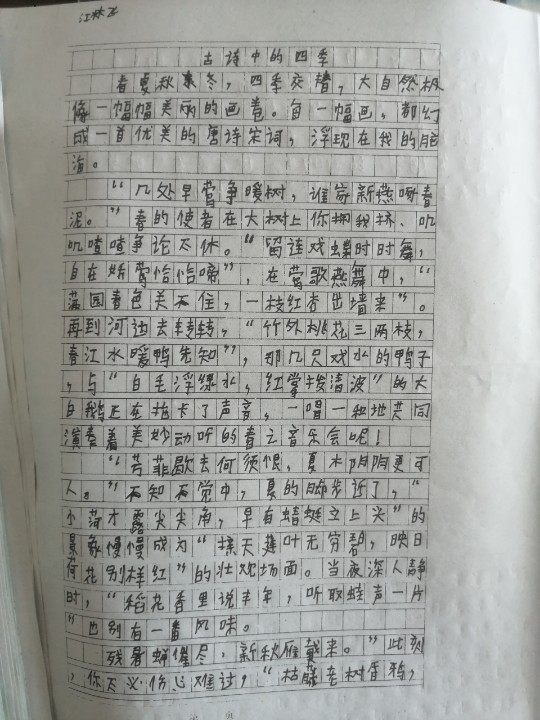 江林飞
古诗中的四季
春夏秋冬,四季交替,大自然极
像一幅幅美丽的画卷。每一幅画,都幻
成一首优美的唐诗宋词,浮现在我的脑
海。
“几处早莺争暖树,谁家新燕啄春
泥。”春的使者在大树上你拥我挤,叽
叽喳喳争论不休。“留连戏蝶时时舞,
自在娇莺恰恰啼”,在莺歌燕舞中,“
满园春色关不住,一枝红杏出墙来”。
再到河边去转转,“竹外桃花三两枝,
春江水暖鸭先知”,那几只戏水的鸭子
,与“白毛浮绿水,红掌拨清波”的大
白鹅正在拉卡了声音,一唱一和地共同
演奏着美妙动听的春之音乐会呢!
“芳菲歇去何须恨,夏木阴阴更可
人。”不知不觉中,夏的脚步近了,“
小荷才露尖尖角,早有蜻蜓立上头”的
景象慢慢成为“接天莲叶无穷碧,映日
荷花别样红”的壮观场面。当夜深人静
时,“稻花香里说丰年,听取蛙声一片
”也别有一番风味。
残暑蝉催尽,新秋雁戴来。”此刻
,你不必伤心难过,“枯藤老树昏鸦,